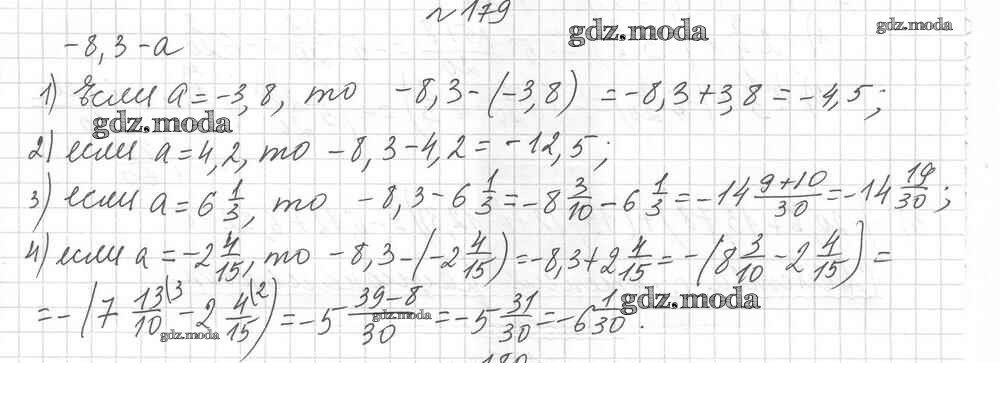 № 179
gdz.moda
gdz.moda
-8,3 - a
1) Если a = -3,8, то -8,3 - (-3,8) = -8,3 + 3,8 = -4,5;
gdz.moda
2) если a = 4,2, то -8,3 - 4,2 = -12,5;
3) если a = 6 1/3, то -8,3 - 6 1/3 = -8 3/10 - 6 1/3 = -14 (9+10)/30 = -14 19/30;
4) если a = -2 4/15, то -8,3 - (-2 4/15) = -8,3 + 2 4/15 = -(8 3/10 - 2 4/15) =
= -(7 13/10 \3 - 2 4/15 \2) = -5 (39-8)/30 = -5 31/30 = -6 1/30.
gdz.moda
gdz.moda
gdz.moda
180